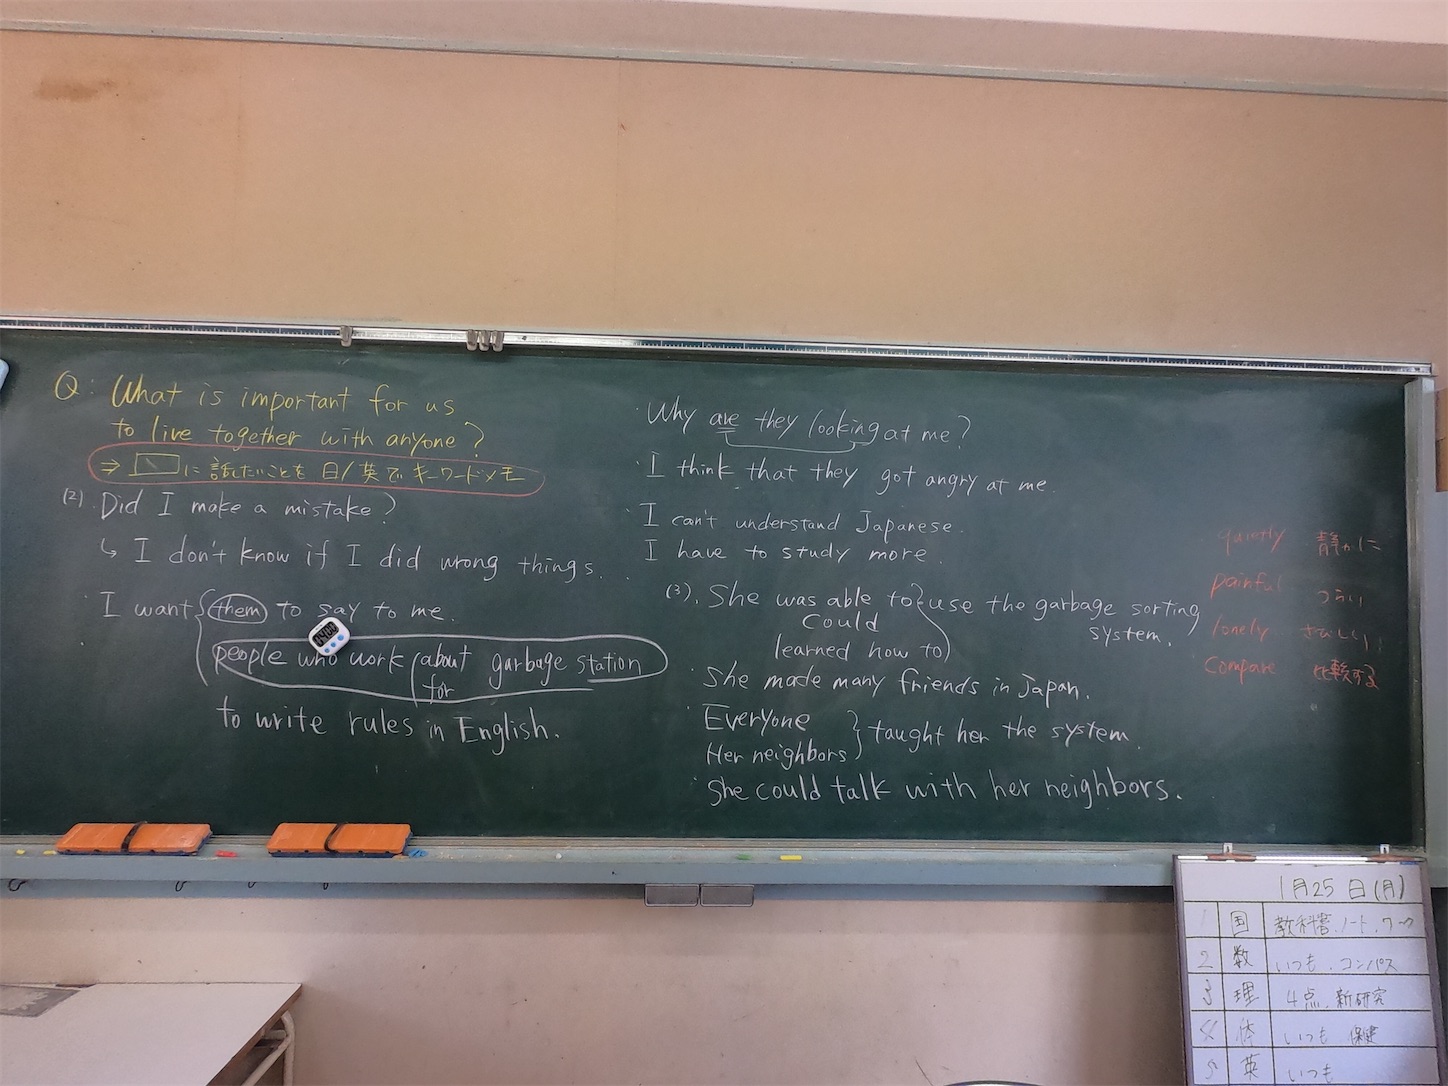 Q: What is important for us
to live together with anyone?
⇒ に 話したいことを 日/英で キーワードメモ
(2). Did I make a mistake?
↳ I don't know if I did wrong things.
I want { them to say to me.
people who work ( about garbage station
for
to write rules in English.
Why are they looking at me?
I think that they got angry at me.
I can't understand Japanese.
I have to study more.
(3). She was able to } use the garbage sorting
could
system.
learned how to
She made many friends in Japan.
Everyone
Her neighbors } taught her the system.
She could talk with her neighbors.
quietly 静かに
painful つらい
lonely さびしい
compare 比較する
1月25日(月)
1 国 教科書、ノート、ワーク
2 数 いつも、コンパス
3 理 4点、新研究
4 体 いつも 保健
5 英 いつも
14:00